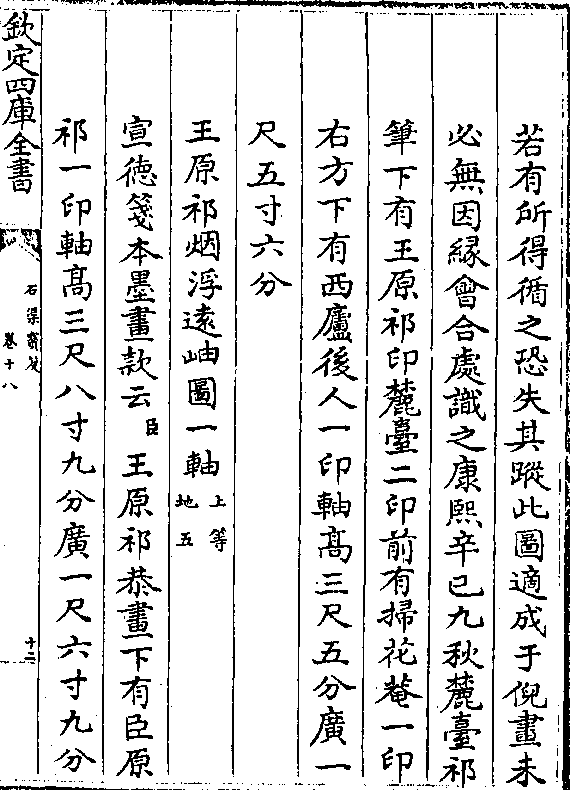 若有所得循之恐失其蹤此圖適成于倪畫未
必無因緣會合處識之康熙辛巳九秋麓臺祁
筆下有王原祁印麓臺二印前有掃花菴一印
右方下有西廬後人一印軸髙三尺五分廣一
尺五寸六分
王原祁烟浮遠岫圖一軸 上等
地五
宣徳箋本墨畫款云臣王原祁恭畫下有臣原
祁一印軸髙三尺八寸九分廣一尺六寸九分
欽定四庫全書
卷十八
十二